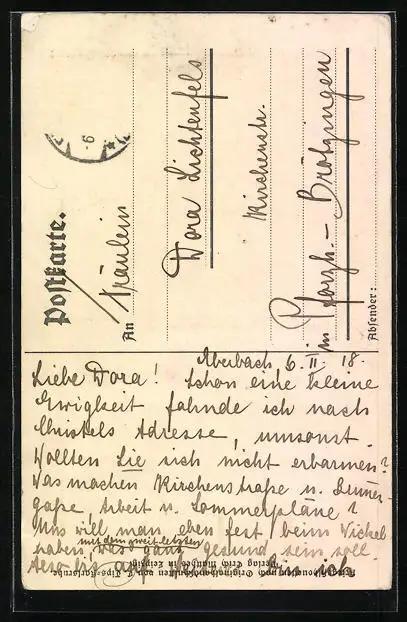 Postkarte.
An
Fräulein
Dora Lichtenfels
Kirchenstr.
in Pforzh. – Brötzingen
Absender:
Aberbach, 6. II. 18.
Liebe Dora! Schon eine kleine
Ewigkeit fahnde ich nach
Christels Adresse, umsonst.
Wollten Sie sich nicht erbarmen?
Was machen Kirchenstraße u.
gaße, Arbeit u. Sommerpläne?
Uns will man eben fest beim Wickel
haben, mit dem zweit-letzten
was ganz gesund sein soll.
Also bis auf bin ich